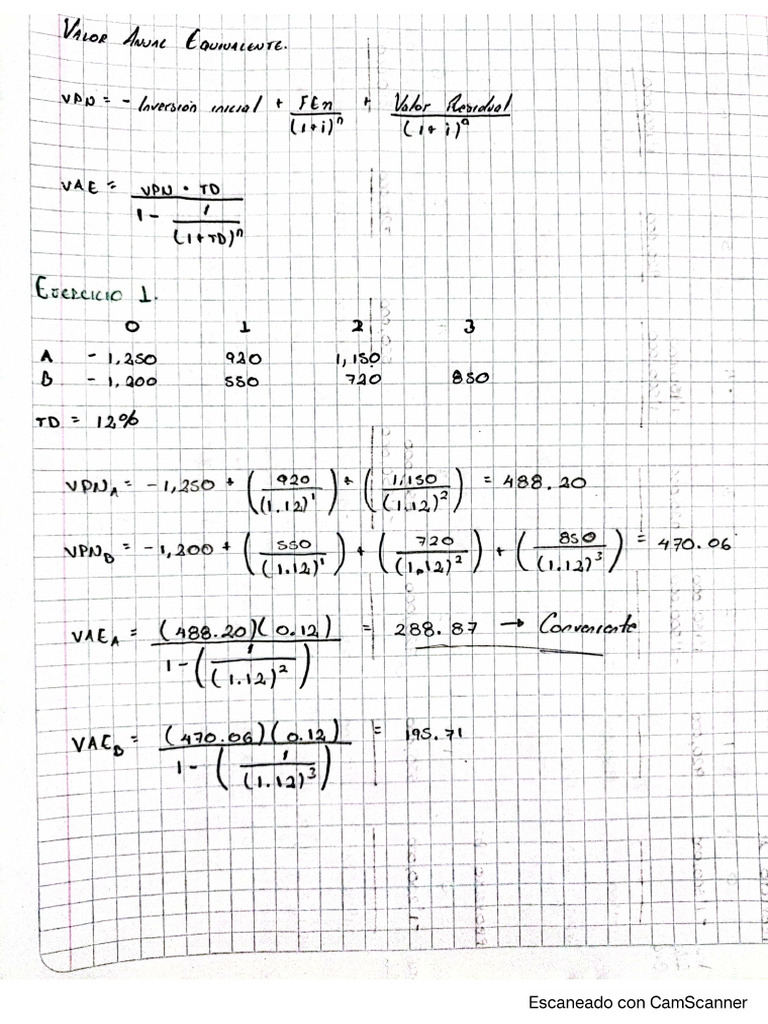 VALOR ANUAL EQUIVALENTE.
VPN = - Inversión inicial + FEn/(1+i)^n + Valor Residual/(1+i)^n
VAE = VPN · TD / 1 - 1/(1+TD)^n
EJERCICIO 1.
0 1 2 3
A -1,250 920 1,150
B -1,200 550 720 850
TD = 12%
VPN_A = -1,250 + (920/(1.12)^1) + (1,150/(1.12)^2) = 488.20
VPN_B = -1,200 + (550/(1.12)^1) + (720/(1.12)^2) + (850/(1.12)^3) = 470.06
VAE_A = (488.20)(0.12) / 1-(1/(1.12)^2) = 288.87 → Conveniente
VAE_B = (470.06)(0.12) / 1-(1/(1.12)^3) = 195.71
Escaneado con CamScanner